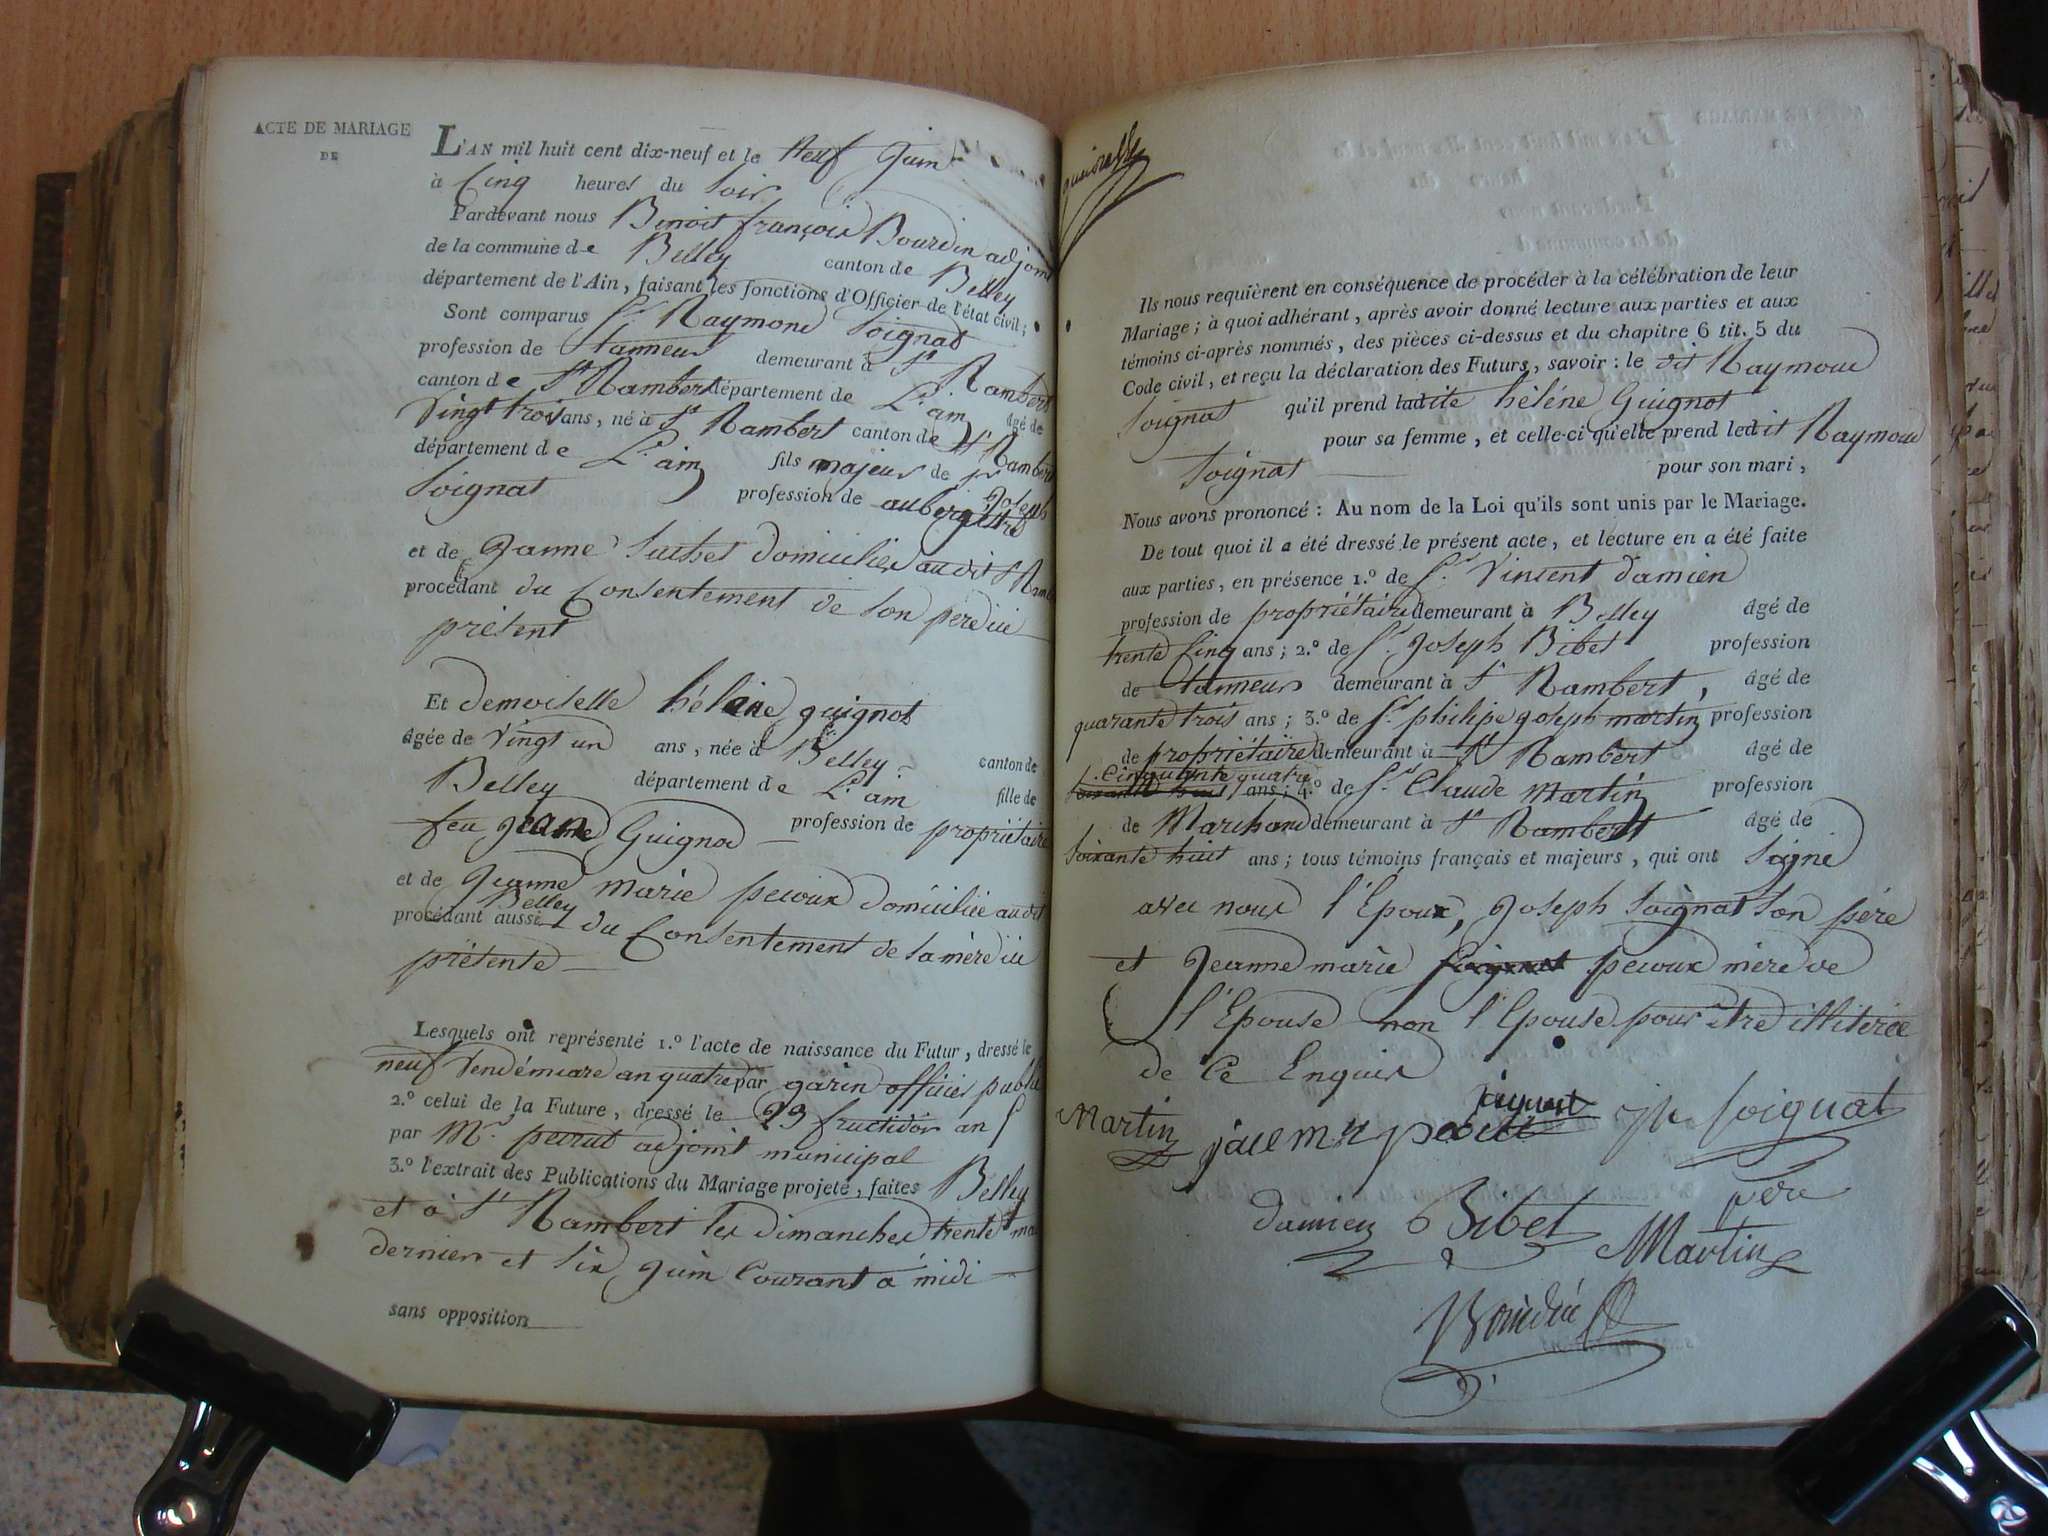 ACTE DE MARIAGE
DE
L'AN mil huit cent dix-neuf et le Neuf Juin
à Cinq heures du soir
Pardevant nous Benoit françois Bourdin adjoint
de la commune de Belley canton de Belley
département de l'Ain, faisant les fonctions d'Officier de l'état civil;
Sont comparus Sr. Raymond Soignat
profession de tanneur demeurant à St Rambert
canton de St Rambert département de L'ain âgé de
Vingt trois ans, né à St Rambert canton de St Rambert
département de L'ain fils majeur de Sr Joseph
Soignat profession de aubergiste
et de Janne Suchet domiciliés audit St Ramb
procédant du Consentement de son pere ici
présent
Et demoiselle héléne guignot
âgée de Vingt un ans, née à Belley canton de
Belley département de L'ain fille de
feu Jean Guignod profession de propriétaire
et de Jeanne marie pecoux domiciliée audit
Belley
procédant aussi du Consentement de sa mère ici
présente
Lesquels ont représenté 1.º l'acte de naissance du Futur, dressé le
neuf Vendémiare an quatre par garin officier public
2.º celui de la Future, dressé le 23 fructidor an 5
par Mr. peyrut adjoint municipal
3.º l'extrait des Publications du Mariage projeté, faites Belley
et à St Rambert les dimanches trente mai
dernier et six juin Courant à midi
sans opposition
Ils nous requièrent en conséquence de procéder à la célébration de leur
Mariage; à quoi adhérant, après avoir donné lecture aux parties et aux
témoins ci-après nommés, des pièces ci-dessus et du chapitre 6 tit. 5 du
Code civil, et reçu la déclaration des Futurs, savoir: le dit Raymond
Soignat qu'il prend ladite héléne Guignot
pour sa femme, et celle-ci qu'elle prend ledit Raymond
Soignat pour son mari,
Nous avons prononcé: Au nom de la Loi qu'ils sont unis par le Mariage.
De tout quoi il a été dressé le présent acte, et lecture en a été faite
aux parties, en présence 1.º de Sr. Vincent damien
profession de propriétaire demeurant à Belley âgé de
trente Cinq ans; 2.º de Sr. Joseph Bibet profession
de tanneur demeurant à St Rambert, âgé de
quarante trois ans; 3.º de Sr philipe joseph martin profession
de propriétaire demeurant à St Rambert âgé de
Cinquante quatre
soixante huit ans; 4.º de Sr. Claude Martin profession
de Marchand demeurant à St Rambert âgé de
Soixante huit ans; tous témoins français et majeurs, qui ont Signé
avec nous l'Epoux, Joseph Soignat son père
et Jeanne marie Soignat pecoux mère de
l'Epouse non l'Epouse pour être illiterée
de Ce Enquise
Martin
jh Soignat
père
damien Bibet
Martin
Bourdin